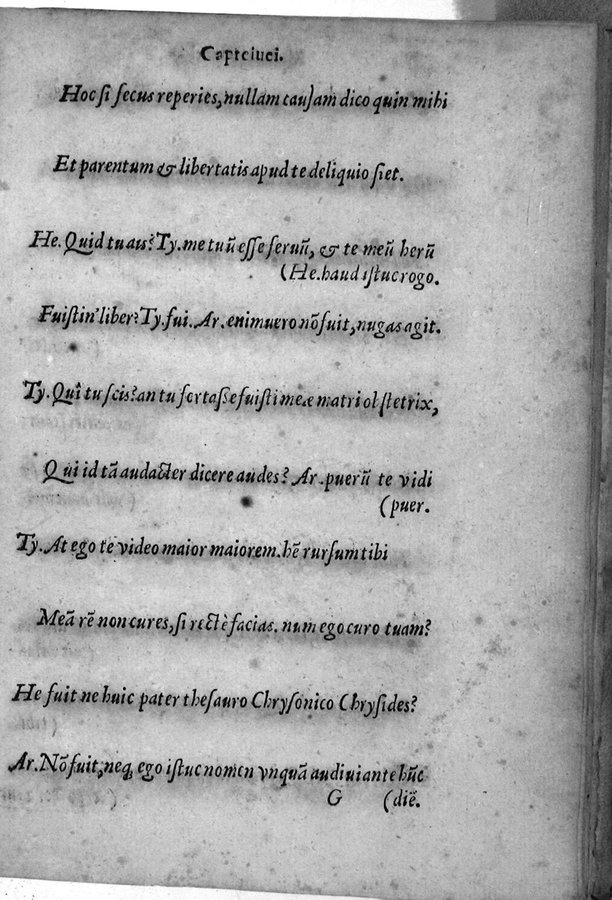 Capteiuei.
Hoc si secus reperies, nullam causam dico quin mihi
Et parentum & libertatis apud te deliquio siet.
He. Quid tu ais? Ty. me tuũ esse seruũ, & te meũ herũ
(He. haud istuc rogo.
Fuistin' liber? Ty. fui. Ar. enimuero nõ fuit, nugas agit.
Ty. Quî tu scis? an tu fortasse fuisti meæ matri obstetrix,
Qui id tã audacter dicere audes? Ar. puerũ te vidi
(puer.
Ty. At ego te video maior maiorem. hẽ rursum tibi
Meã rẽ non cures, si rectè facias. num ego curo tuam?
He fuit ne huic pater thesauro Chrysonico Chrysides?
Ar. Nõ fuit, neq; ego istuc nomen vnquã audiui ante hũc
G (diẽ.